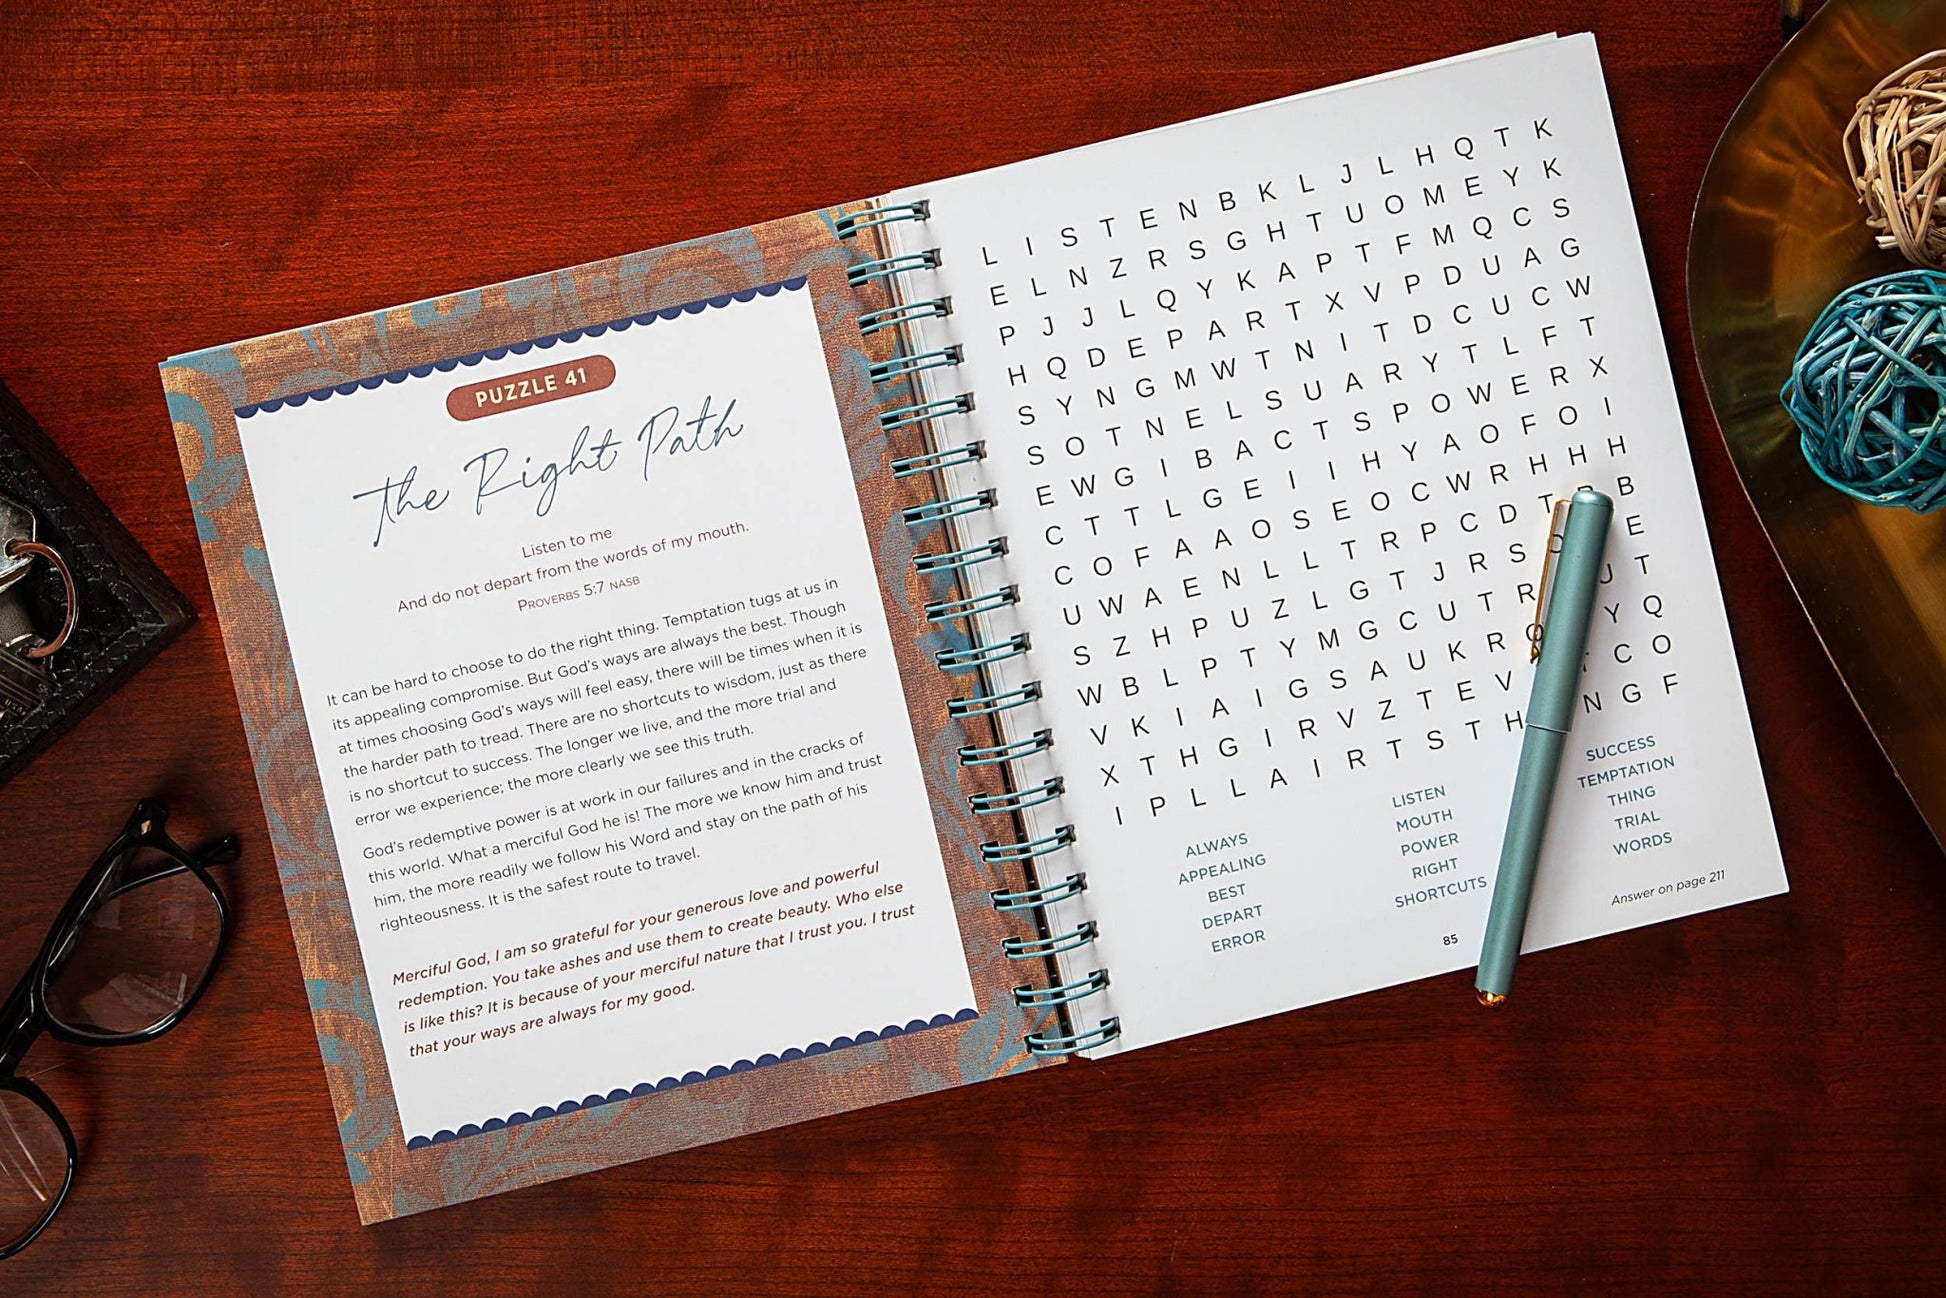 PUZZLE 41
The Right Path
Listen to me
And do not depart from the words of my mouth.
PROVERBS 5:7 NASB
It can be hard to choose to do the right thing. Temptation tugs at us in
its appealing compromise. But God's ways are always the best. Though
at times choosing God's ways will feel easy, there will be times when it is
the harder path to tread. There are no shortcuts to wisdom, just as there
is no shortcut to success. The longer we live, and the more trial and
error we experience; the more clearly we see this truth.
God's redemptive power is at work in our failures and in the cracks of
this world. What a merciful God he is! The more we know him and trust
him, the more readily we follow his Word and stay on the path of his
righteousness. It is the safest route to travel.
Merciful God, I am so grateful for your generous love and powerful
redemption. You take ashes and use them to create beauty. Who else
is like this? It is because of your merciful nature that I trust you. I trust
that your ways are always for my good.
L I S T E N B K L J L H Q T K
E L N Z R S G H T U O M E Y K
P J J L Q Y K A P T F M Q C S
H Q D E P A R T X V P D U A G
S Y N G M W T N I T D C U C W
S O T N E L S U A R Y T L F T
E W G I B A C T S P O W E R X
C T T L G E I I H Y A O F O I
C O F A A O S E O C W R H H H
U W A E N L L T R P C D T B
S Z H P U Z L G T J R S E
W B L P T Y M G C U T R J T
V K I A I G S A U K R Y Q
X T H G I R V Z T E V C O
I P L L A I R T S T H N G F
ALWAYS
APPEALING
BEST
DEPART
ERROR
LISTEN
MOUTH
POWER
RIGHT
SHORTCUTS
SUCCESS
TEMPTATION
THING
TRIAL
WORDS
Answer on page 211
85